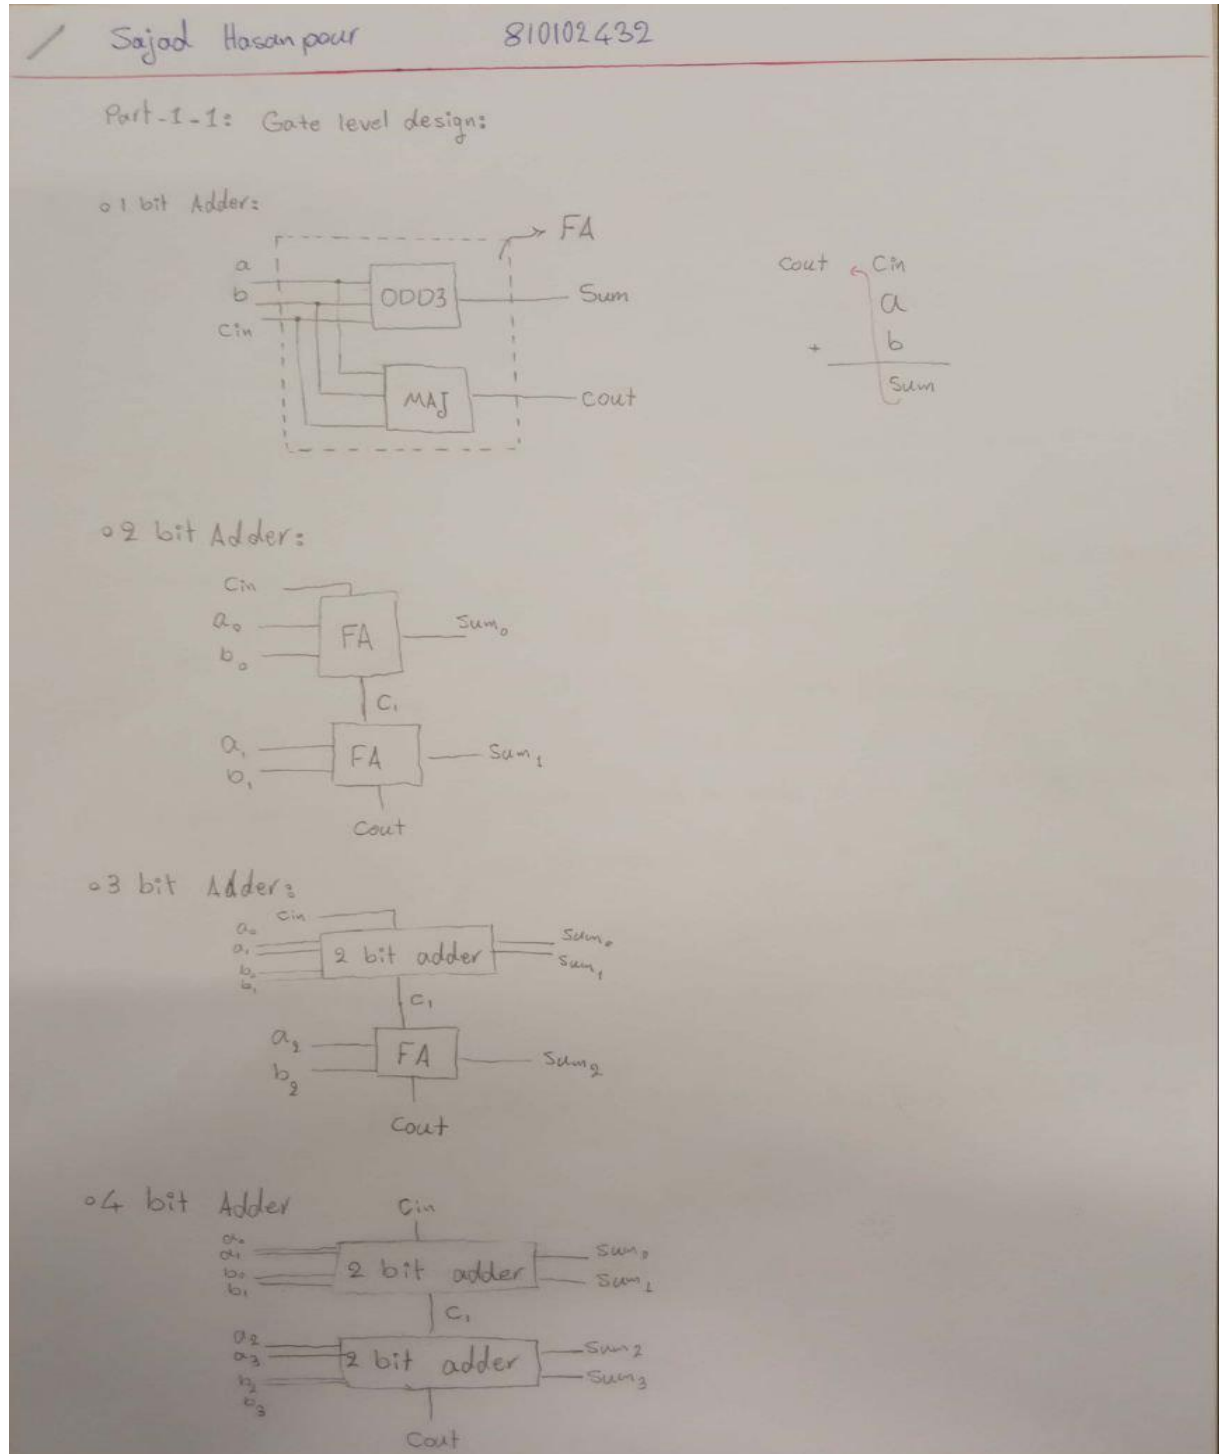 Sajad Hasanpour 810102432
Part-1-1: Gate level design:
1 bit Adder:
FA
a
b
Cin
ODD3
Sum
MAJ
Cout
Cout Cin
a
b
+
Sum
2 bit Adder:
Cin
a₀
b₀
FA
Sum₀
C₁
a₁
b₁
FA
Sum₁
Cout
3 bit Adder:
Cin
a₀
a₁
b₀
b₁
2 bit adder
Sum₀
Sum₁
C₁
a₂
b₂
FA
Sum₂
Cout
4 bit Adder
Cin
a₀
a₁
b₀
b₁
2 bit adder
Sum₀
Sum₁
C₁
a₂
a₃
b₂
b₃
2 bit adder
Sum₂
Sum₃
Cout